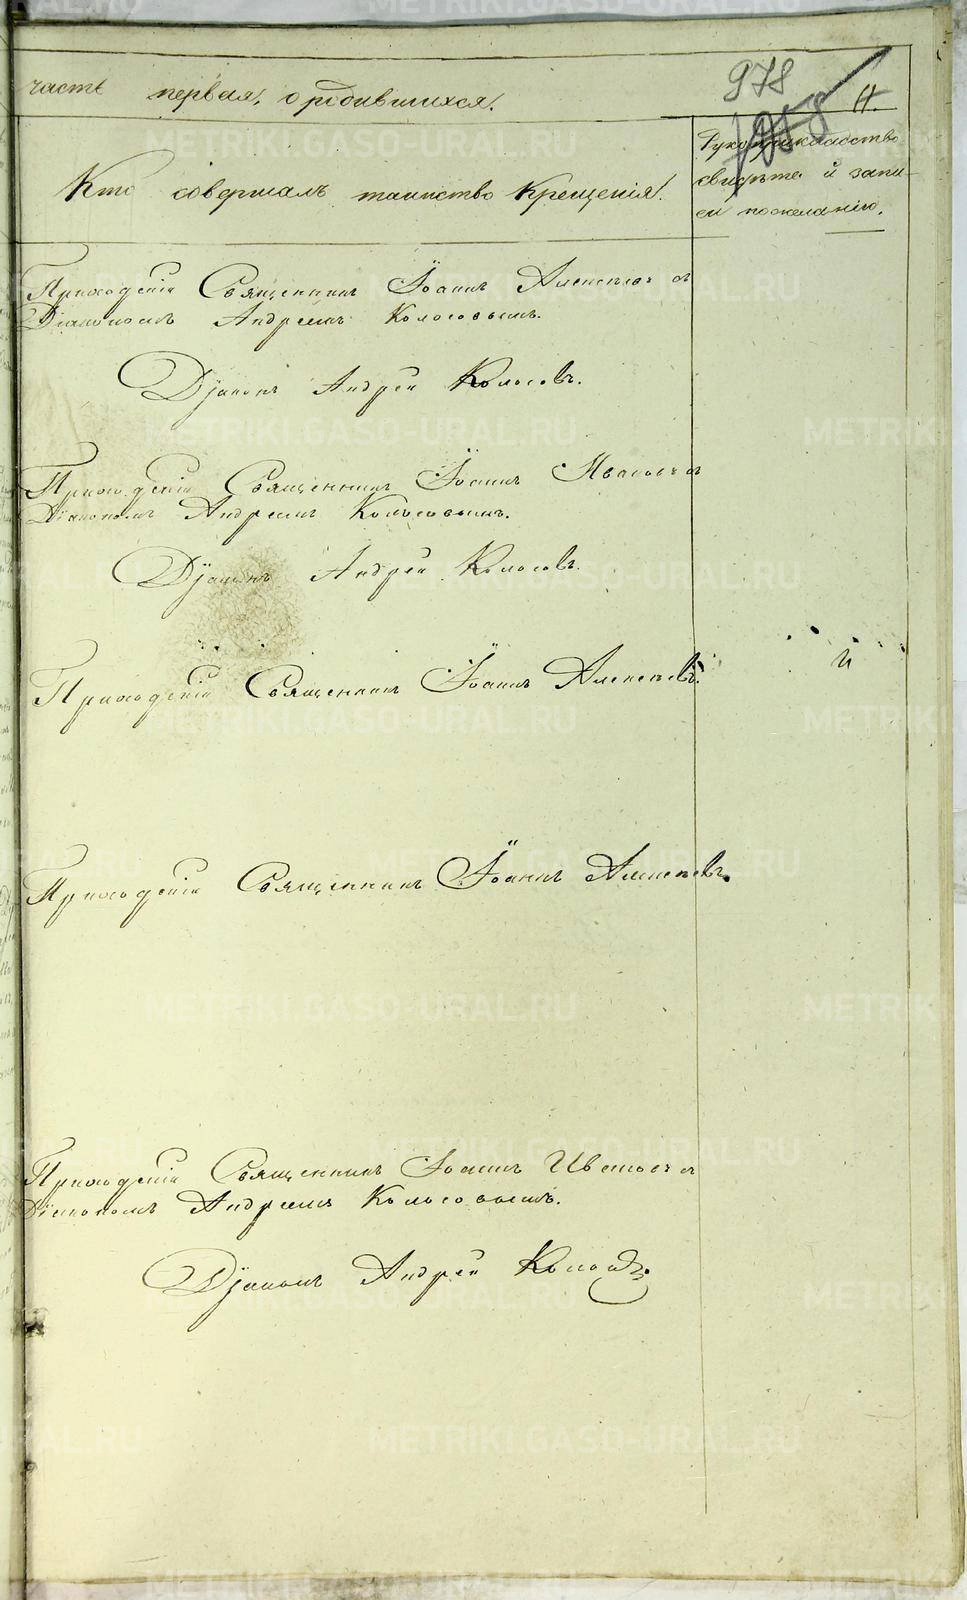 978
часть первая, о родившихся.
Кто совершалъ таинство Крещенія.
Рукоприкладство
свидѣте й запи-
си по желанію.
Приходскій Священникъ Іоаннъ Алексѣевъ съ
Діакономъ Андреемъ Колосовымъ.
Діаконъ Андрей Колосовъ.
Приходскій Священникъ Іоаннъ Ивановъ съ
Діакономъ Андреемъ Колосовымъ.
Діаконъ Андрей Колосовъ.
Приходскій Священникъ Іоаннъ Алексѣевъ.
Приходскій Священникъ Іоаннъ Алексѣевъ.
Приходскій Священникъ Іоаннъ Ивановъ съ
Діакономъ Андреемъ Колосовымъ.
Діаконъ Андрей Колосовъ.
METRIKI.GASO-URAL.RU